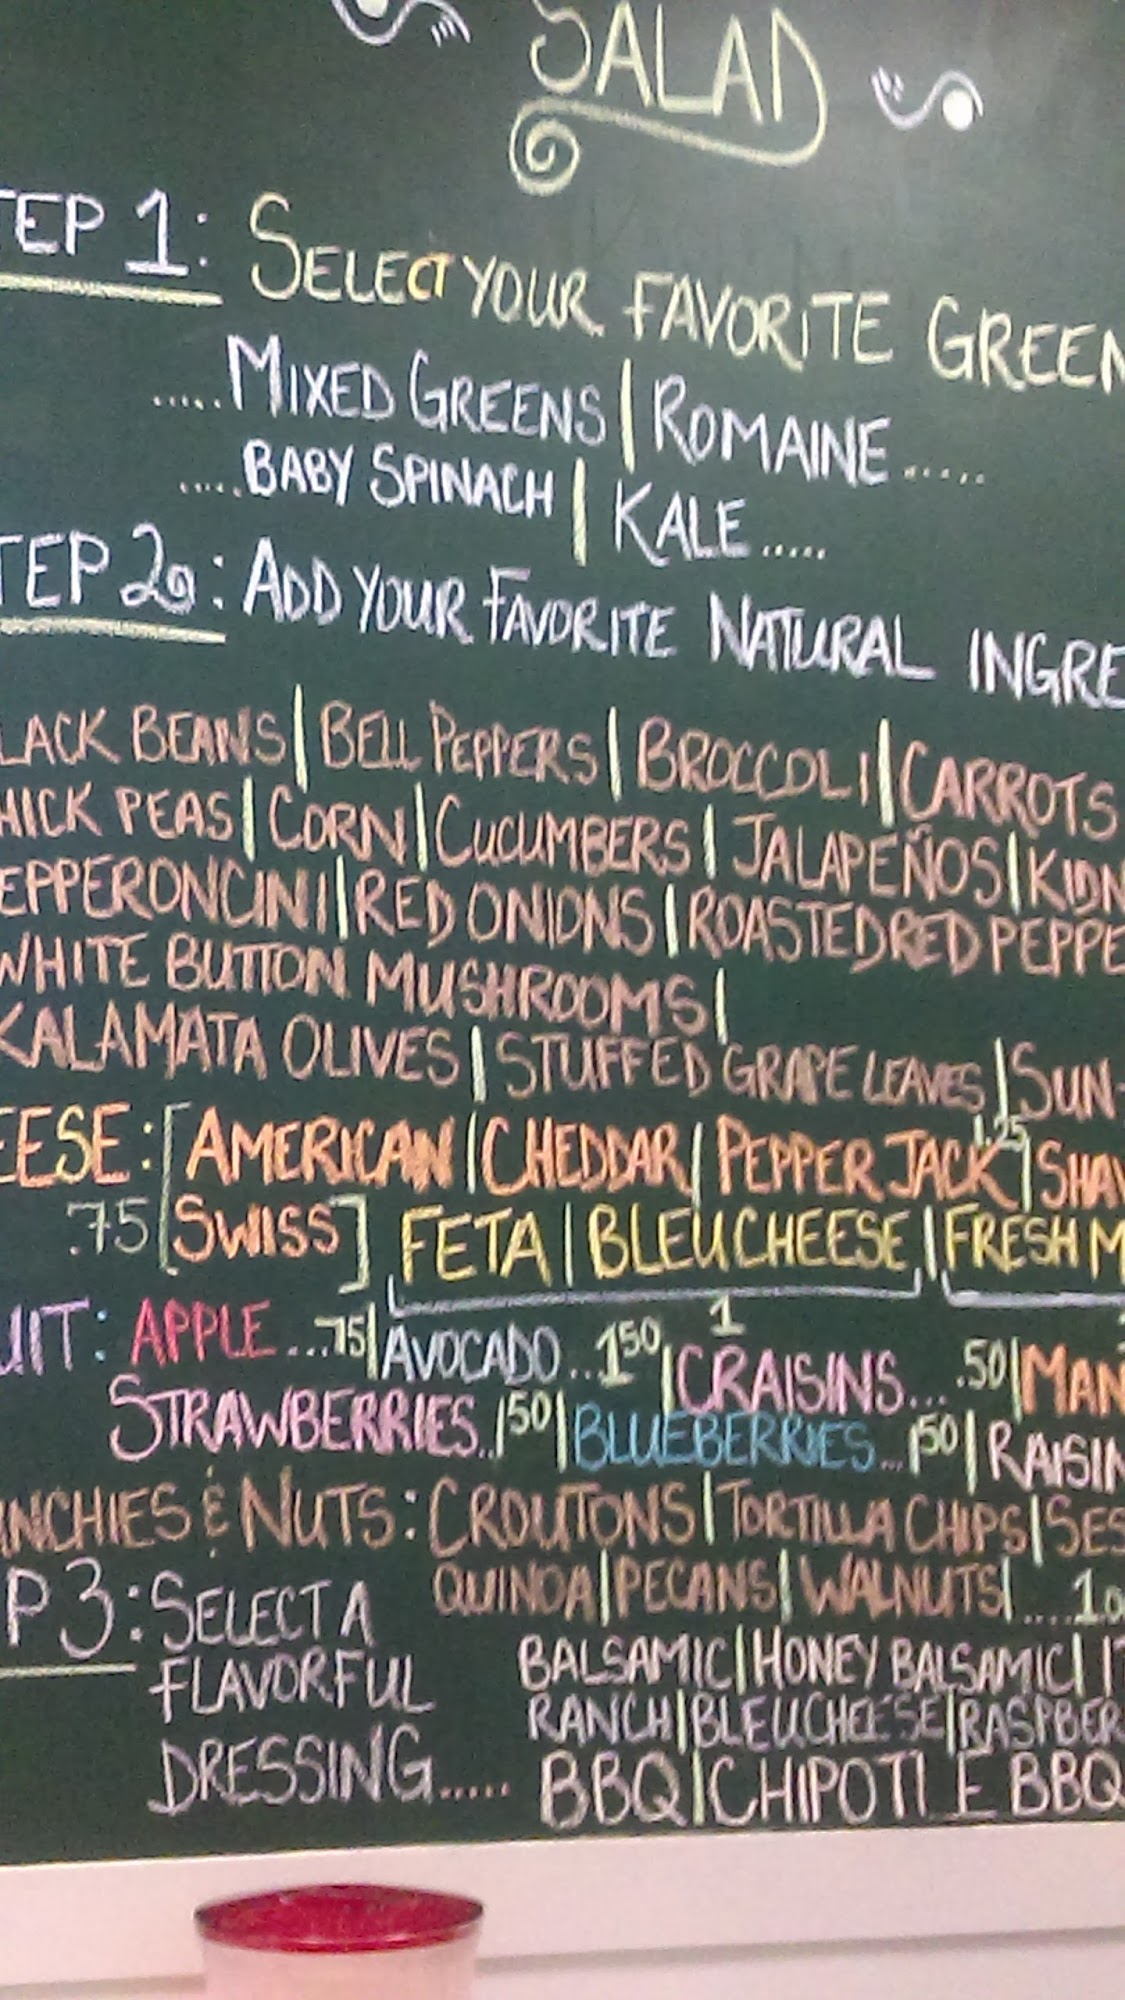 SALAD
TEP 1: SELECT YOUR FAVORITE GREEN
.....MIXED GREENS | ROMAINE.....
.....BABY SPINACH | KALE.....
TEP 2: ADD YOUR FAVORITE NATURAL INGRE
LACK BEANS | BELL PEPPERS | BROCCOLI | CARROTS
HICK PEAS | CORN | CUCUMBERS | JALAPEÑOS | KIDN
EPPERONCINI | RED ONIONS | ROASTED RED PEPPE
WHITE BUTTON MUSHROOMS |
KALAMATA OLIVES | STUFFED GRAPE LEAVES | SUN-
EESE: [AMERICAN | CHEDDAR | PEPPER JACK 1.25 | SHAV
.75 [SWISS] FETA | BLEU CHEESE | FRESH M
1
UIT: APPLE...75 | AVOCADO..1 50 | CRAISINS....50 | MAN
STRAWBERRIES..1 50 | BLUEBERRIES...1 50 | RAISIN
UNCHIES & NUTS: CROUTONS | TORTILLA CHIPS | SES
QUINOA | PECANS | WALNUTS | ....1.0
P 3: SELECT A FLAVORFUL DRESSING.....
BALSAMIC | HONEY BALSAMIC | IT
RANCH | BLEU CHEESE | RASPBER
BBQ | CHIPOTLE BBQ